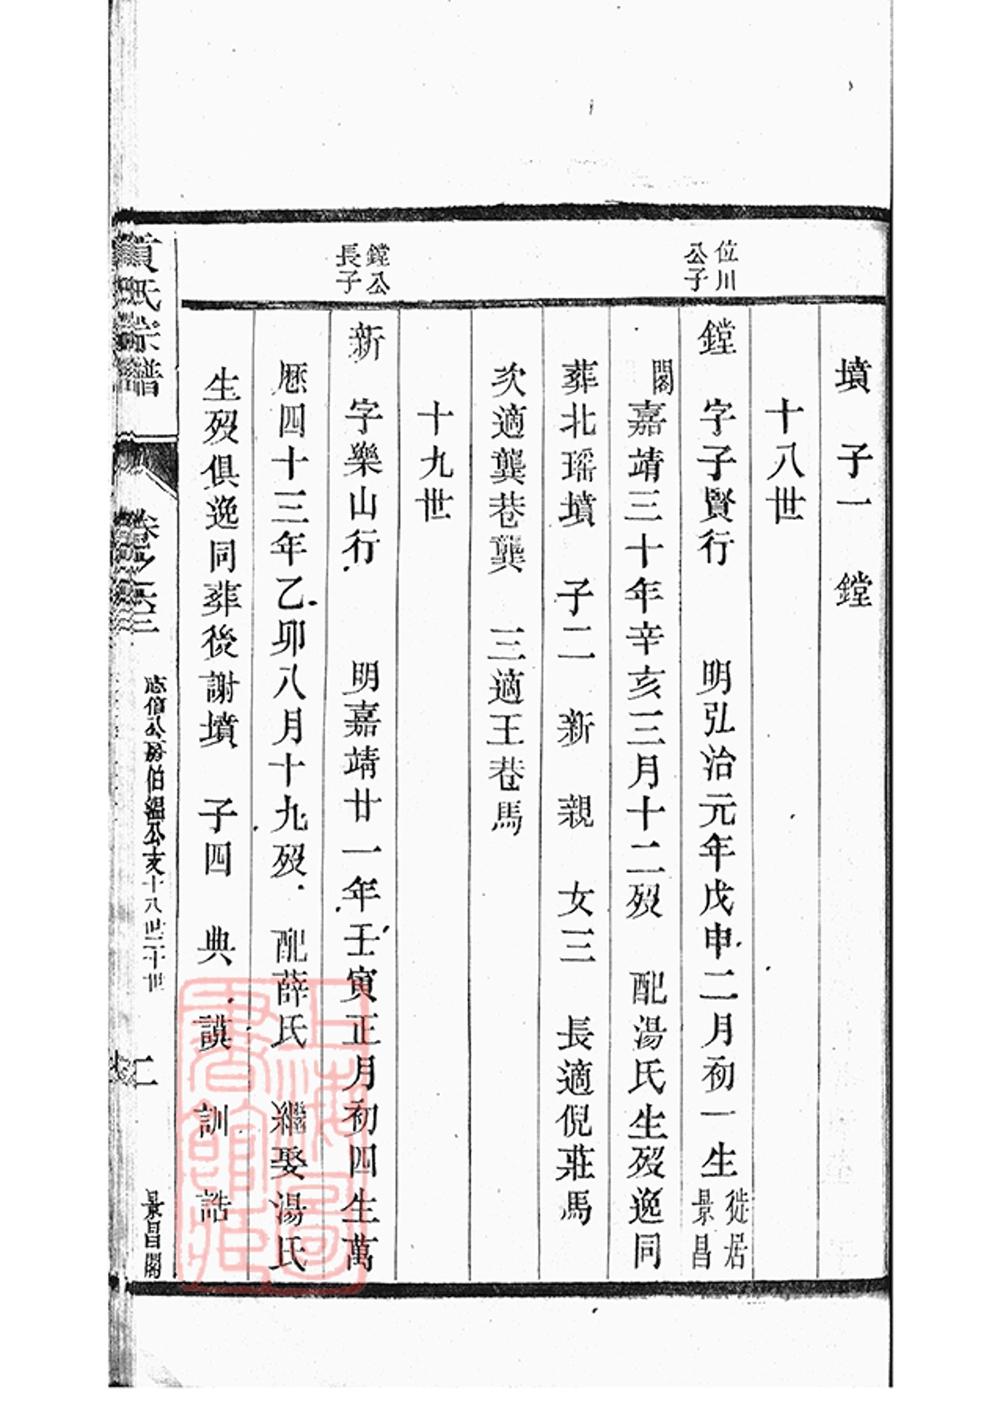 墳 子一 鏜
十八世
位川公子
鏜 字子賢行 明弘治元年戊申二月初一生徙居景昌
閣嘉靖三十年辛亥三月十二歿 配湯氏生歿逸同
葬北瑶墳 子二 新 親 女三 長適倪莊馬
次適龔巷龔 三適王巷馬
十九世
鏜公長子
新 字樂山行 明嘉靖廿一年壬寅正月初四生萬
厯四十三年乙卯八月十九歿 配薛氏 繼娶湯氏
生歿俱逸同葬後謝墳 子四 典 謨 訓 誥
氏宗譜
卷之
公房伯溫公支十八世二十世
二
景昌閣
上海圖書館藏